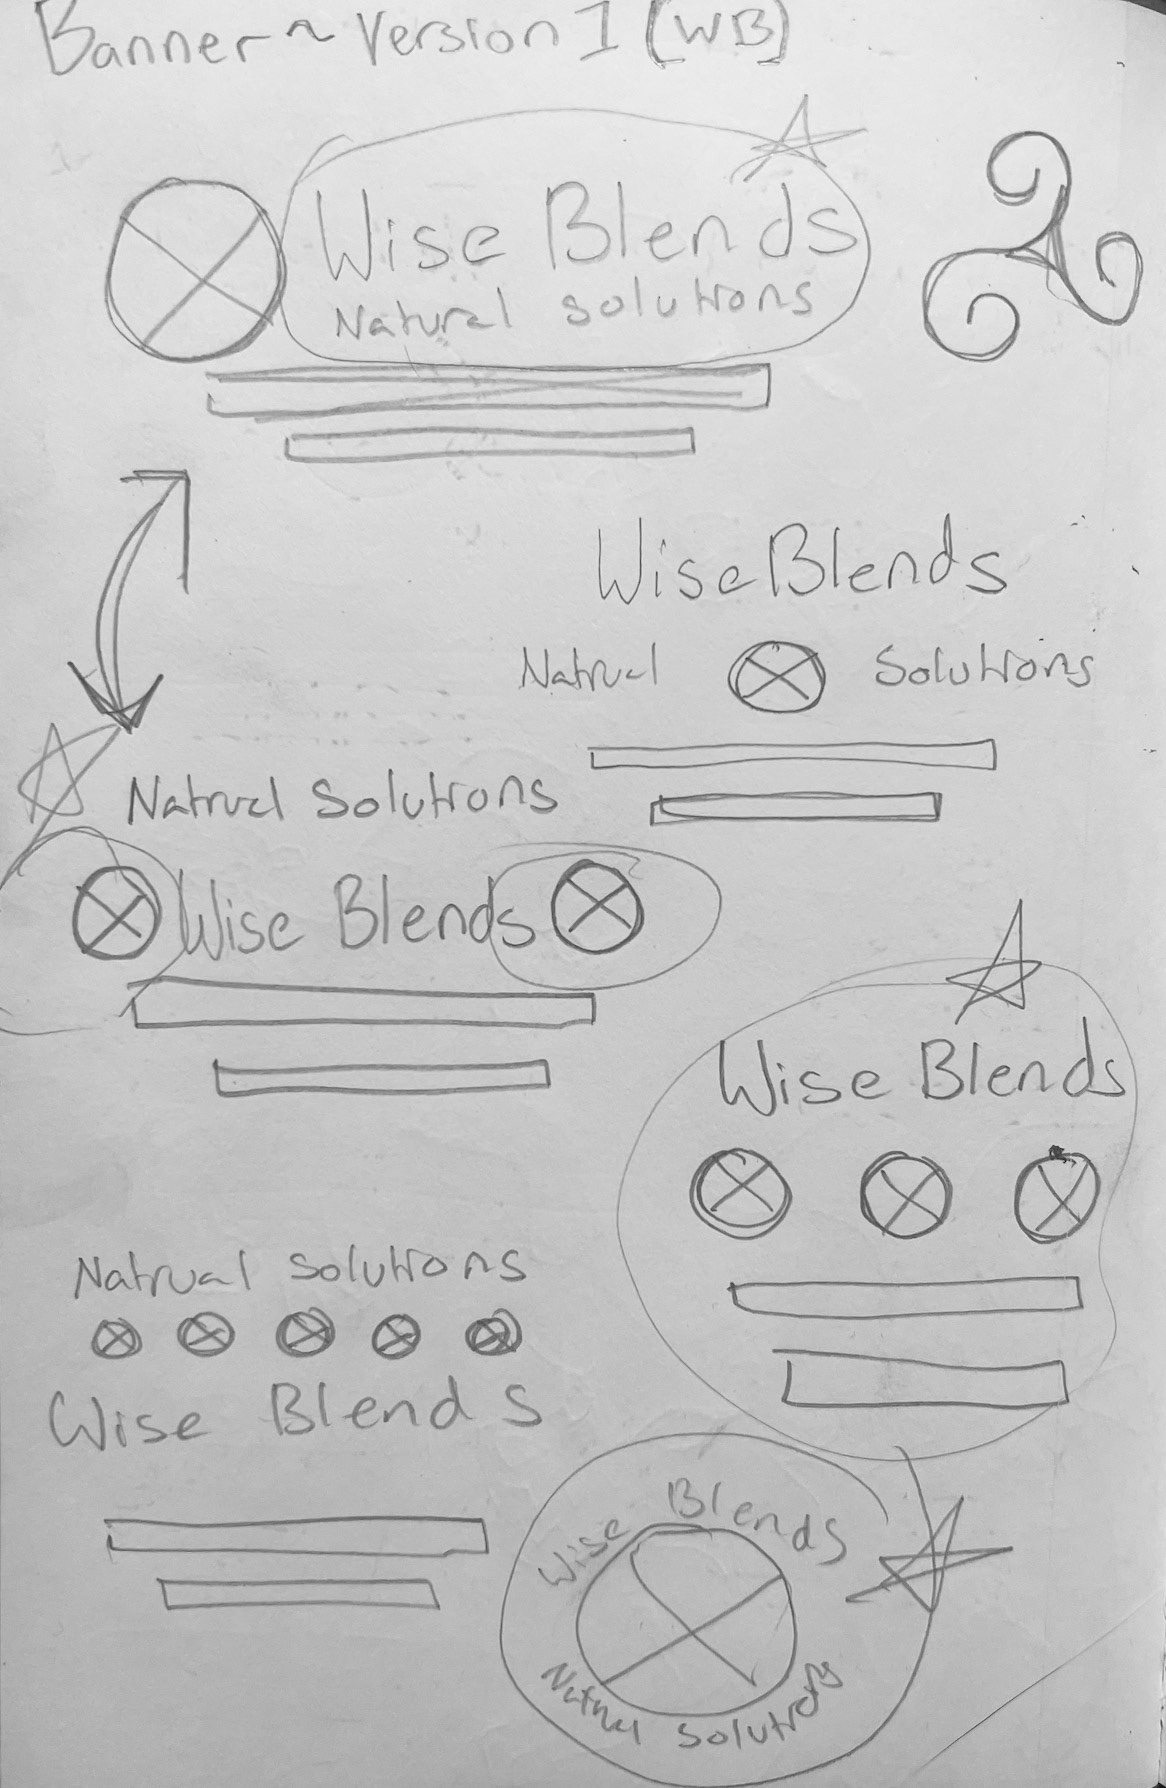 Banner ~ Version 1 (WB)
Wise Blends
Natural Solutions
Wise Blends
Natrual Solutions
Natrual Solutions
Wise Blends
Wise Blends
Natrual Solutions
Wise Blends
Wise Blends
Natrual Solutions